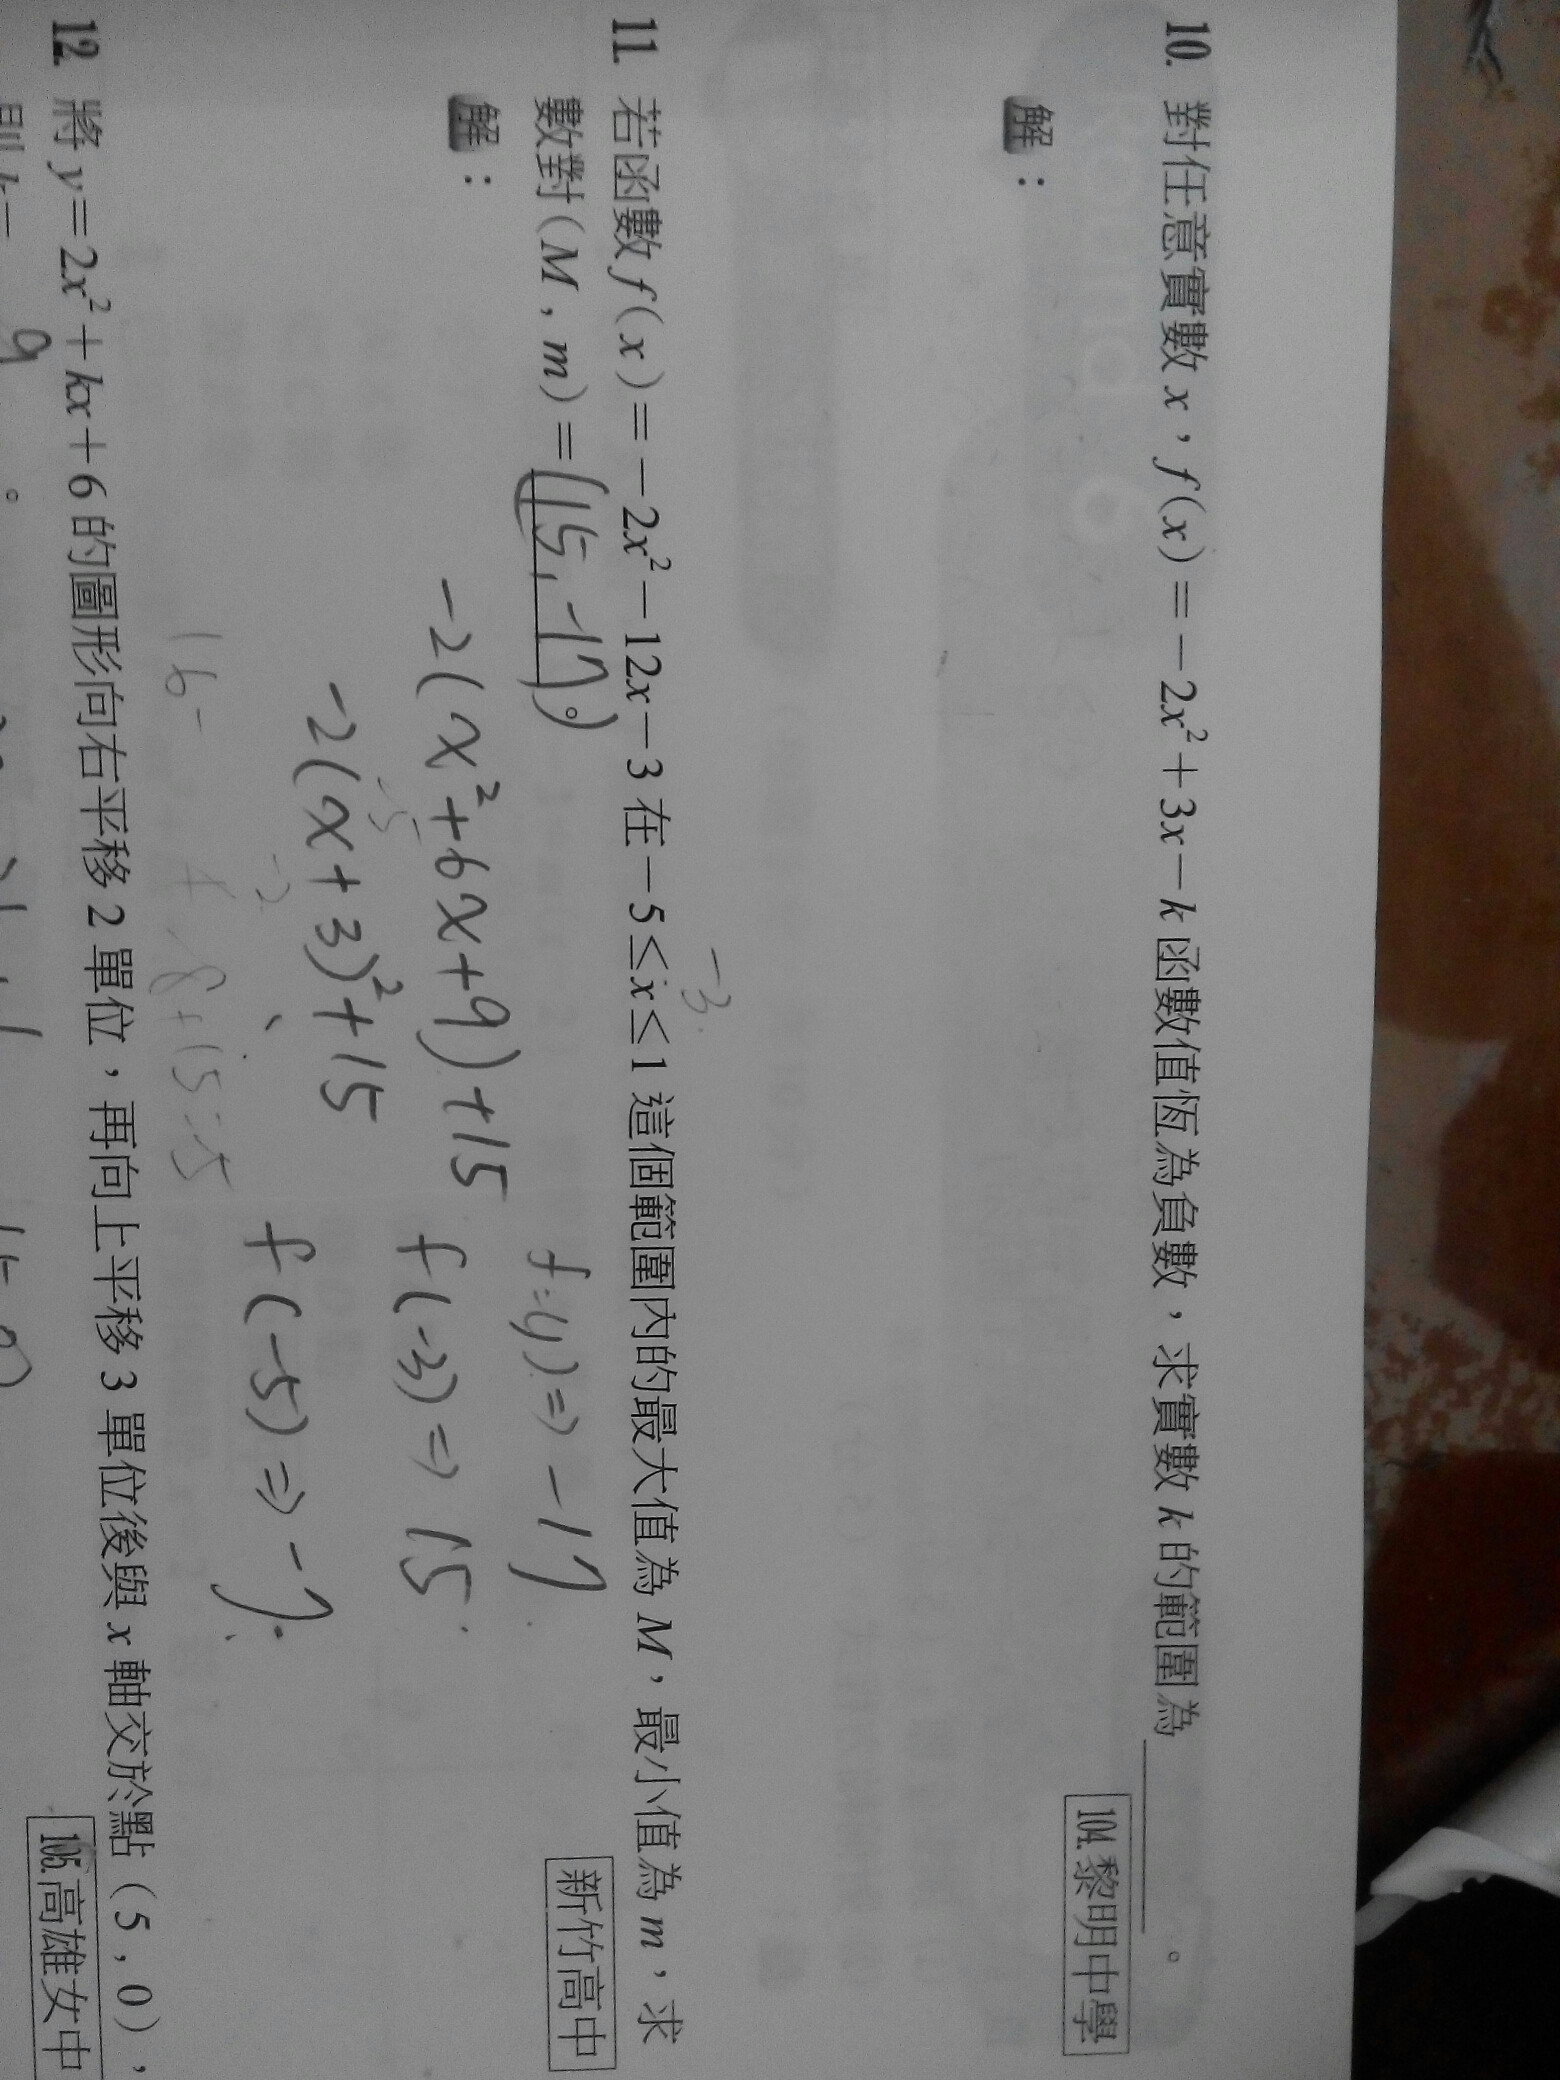 10. 對任意實數 x，f(x)＝－2x²＋3x－k 函數值恆為負數，求實數 k 的範圍為＿＿＿。
104.黎明中學
解：
11. 若函數 f(x)＝－2x²－12x－3 在－5≤x≤1 這個範圍內的最大值為 M，最小值為 m，求
-3
數對(M，m)＝(15,-17)。
新竹高中
解：
-2(x²+6x+9)+15
⇒ -17
-2(x+3)²+15
f(-3)⇒ 15
f(-5)⇒ -7
12. 將 y＝2x²＋kx＋6 的圖形向右平移 2 單位，再向上平移 3 單位後與 x 軸交於點(5，0)，
9 。
105.高雄女中